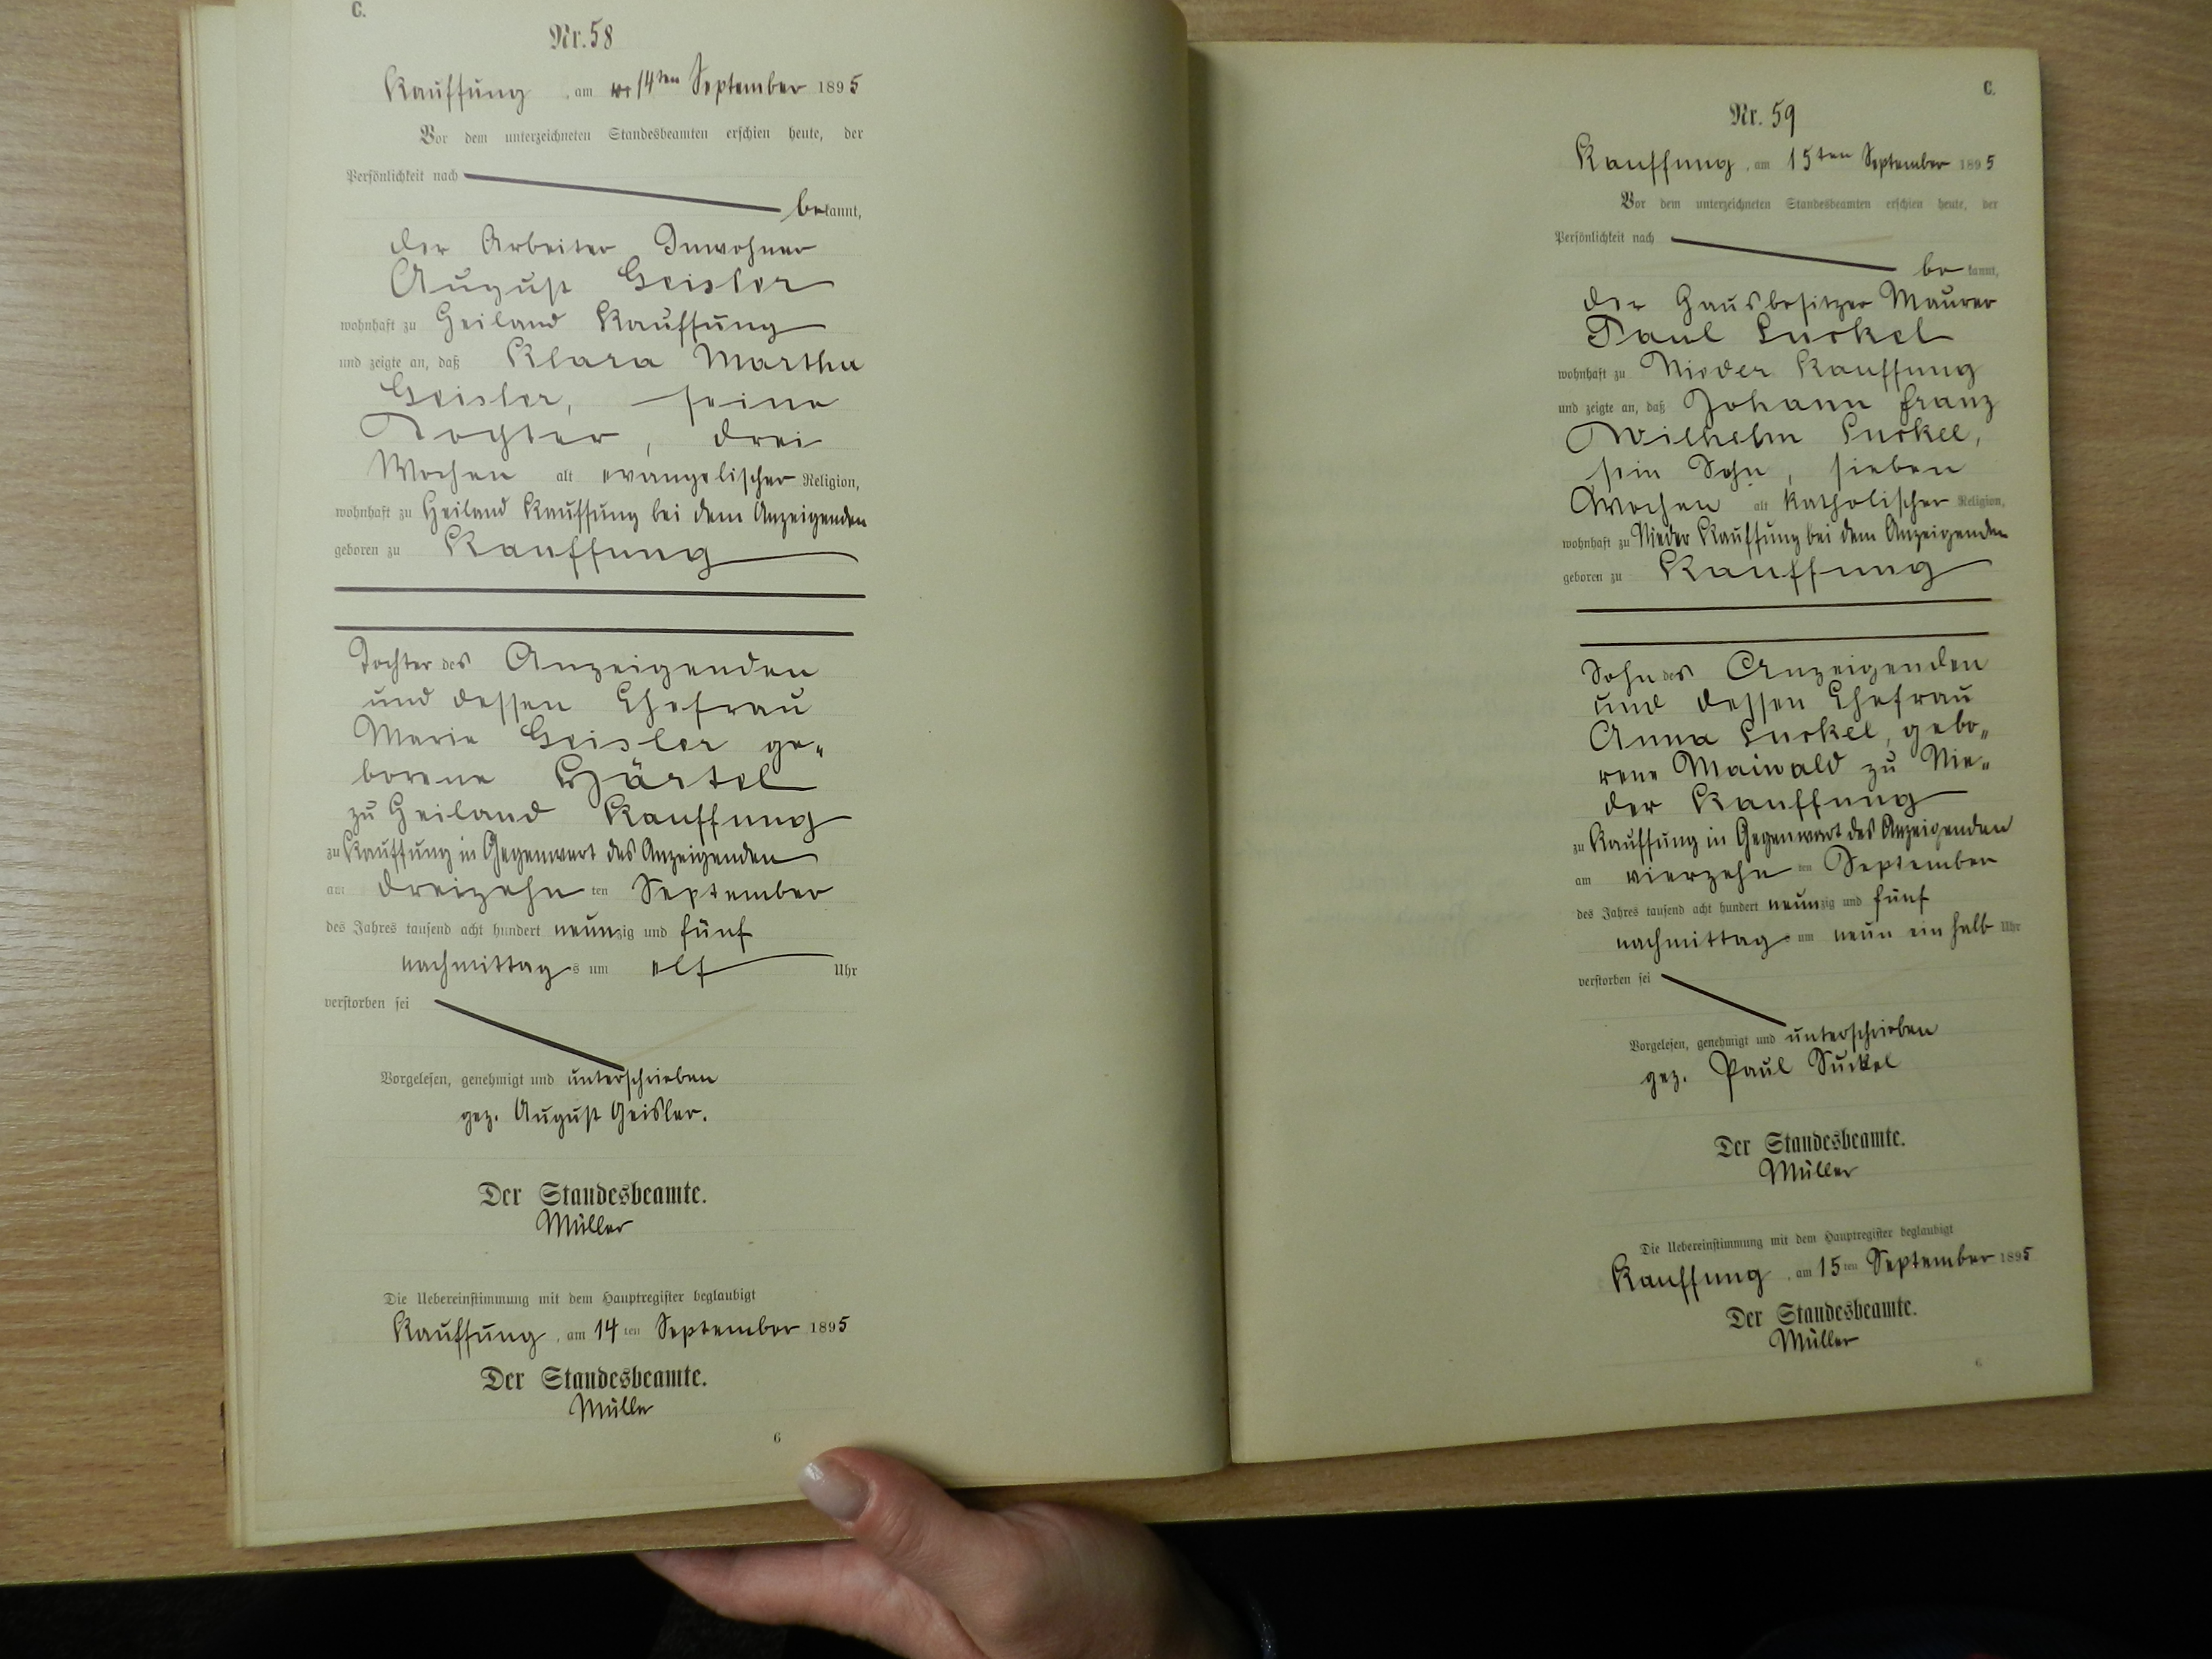 C.
Nr. 58
Kauffung, am 14ten September 1895
Vor dem unterzeichneten Standesbeamten erschien heute, der
Persönlichkeit nach
bekannt,
der Arbeiter Inwohner
August Geisler
wohnhaft zu Heiland Kauffung
und zeigte an, daß Klara Martha
Geisler, seine
Tochter, drei
Wochen alt evangelischer Religion,
wohnhaft zu Heiland Kauffung bei dem Anzeigenden
geboren zu Kauffung
Tochter des Anzeigenden
und dessen Ehefrau
Marie Geisler ge„
borene Härtel
zu Heiland Kauffung
zu Kauffung in Gegenwart des Anzeigenden
am dreizehnten September
des Jahres tausend acht hundert neunzig und fünf
nachmittags um elf Uhr
verstorben sei
Vorgelesen, genehmigt und unterschrieben
gez. August Geisler.
Der Standesbeamte.
Müller
Die Uebereinstimmung mit dem Hauptregister beglaubigt
Kauffung, am 14ten September 1895
Der Standesbeamte.
Müller
6
C.
Nr. 59
Kauffung, am 15ten September 1895
Vor dem unterzeichneten Standesbeamten erschien heute, der
Persönlichkeit nach
bekannt,
der Hausbesitzer Maurer
Paul Suckel
wohnhaft zu Nieder Kauffung
und zeigte an, daß Johann Franz
Wilhelm Suckel,
sein Sohn, sieben
Wochen alt katholischer Religion,
wohnhaft zu Nieder Kauffung bei dem Anzeigenden
geboren zu Kauffung
Sohn des Anzeigenden
und dessen Ehefrau
Anna Suckel, gebo„
rene Maiwald zu Nie„
der Kauffung
zu Kauffung in Gegenwart des Anzeigenden
am vierzehnten September
des Jahres tausend acht hundert neunzig und fünf
nachmittags um neun ein halb Uhr
verstorben sei
Vorgelesen, genehmigt und unterschrieben
gez. Paul Suckel
Der Standesbeamte.
Müller
Die Uebereinstimmung mit dem Hauptregister beglaubigt
Kauffung, am 15ten September 1895
Der Standesbeamte.
Müller
6